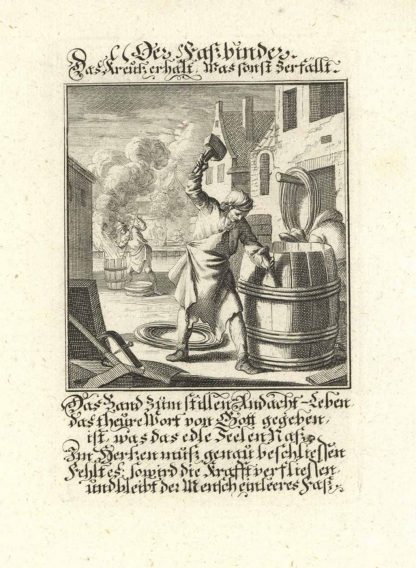 Der Faßbinder.
Das Kreutz erhält, was sonst zerfällt.
Das Band zum stillen Andacht-Leben
das theure Wort von Gott gegeben,
ist, was das edle Seelen Naß,
Im Hertzen muß genau beschliessen
Fehlt es, so wird die Krafft verfliessen,
und bleibt der Mensch ein leeres Faß.